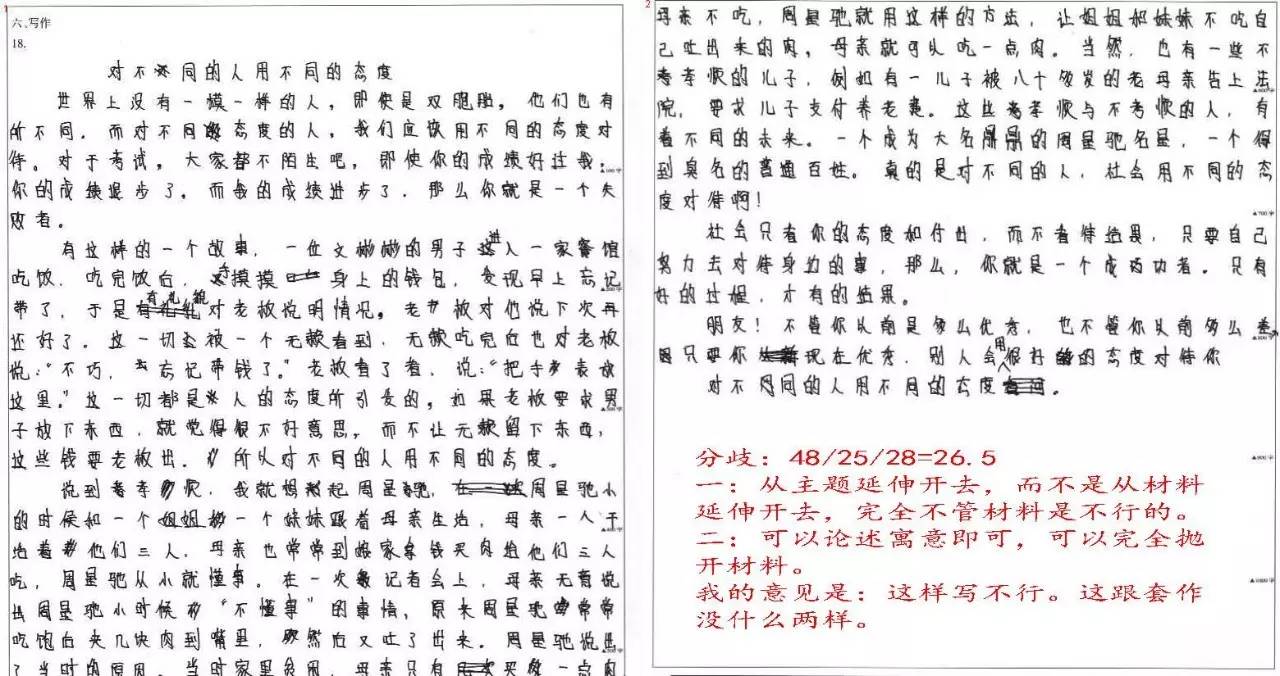 1
六、写作
18.
对不同的人用不同的态度
世界上没有一模一样的人，即使是双胞胎，他们也有
所不同。而对不同态度的人，我们应该用不同的态度对
待。对于考试，大家都不陌生吧，即使你的成绩好过我，
你的成绩退步了，而我的成绩进步了，那么你就是一个失
败者。
有这样的一个故事，一位文的男子进入一家餐馆
吃饭，吃完饭后，摸摸身上的钱包，发现早上忘记
带了，于是有礼貌对老板说明情况。老板对他说下次再
还好了。这一切被一个无赖看到，无赖吃完后也对老板
说：“不巧，忘记带钱了。”老板看了看，说：“把手表放
这里。”这一切都是人的态度所引发的，如果老板要求男
子放下东西，就觉得很不好意思。而不让无赖留下东西，
这些钱要老板出。所以对不同的人用不同的态度。
说到孝顺，我就想起周星驰，周星驰小
的时候和一个姐姐一个妹妹跟着母亲生活，母亲一人干
活着他们三人，母亲也常常到娘家拿钱买肉给他们三人
吃，周星驰从小就懂事。在一次记者会上，母亲无意说
出周星驰小时候“不懂事”的事情，原来周星驰常常
吃饱后夹几块肉到嘴里，然后又吐了出来。周星驰说出
了当时的原因，当时家里贫困，母亲只有买一点肉
2
母亲不吃，周星驰就用这样的方法，让姐姐和妹妹不吃自
己吐出来的肉，母亲就可以吃一点肉。当然，也有一些不
孝顺的儿子，例如有一儿子被八十多岁的老母亲告上法
院，要求儿子支付养老费。这些孝顺与不孝顺的人，有
着不同的未来。一个成为大名鼎鼎的周星驰名星，一个得
到臭名的普通百姓。真的是对不同的人，社会用不同的态
度对待啊！
社会只看你的态度和付出，而不看待结果，只要自己
努力去对待身边的事，那么，你就是一个成功者。只有
好的过程，才有的结果。
朋友！不管你以前是多么优秀，也不管你以前多么差，
只要你现在优秀，别人会用很好的态度对待你
对不同的人用不同的态度。
分歧：48/25/28=26.5
一：从主题延伸开去，而不是从材料
延伸开去，完全不管材料是不行的。
二：可以论述寓意即可，可以完全抛
开材料。
我的意见是：这样写不行。这跟套作
没什么两样。